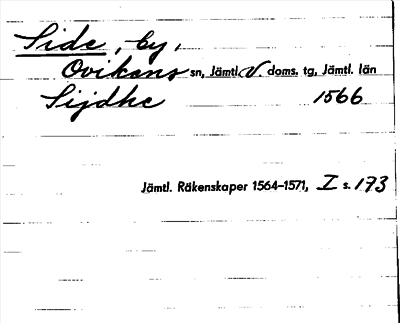 Side, by,
Ovikens sn, Jämtl. V. doms. tg, Jämtl. län
Sijdhe 1566
Jämtl. Räkenskaper 1564–1571, I s. 173